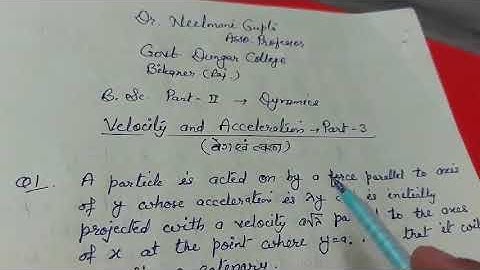 Dr. Neelmani Gupta
Asso. Professor
Govt Dungar College
Bikaner (Raj.)
B. Sc. Part - II → Dynamics
Velocity and Acceleration → Part-3
(वेग एवं त्वरण)
Q1. A particle is acted on by a force parallel to axis
of y whose acceleration is λy is initially
projected with a velocity a√λ to the axes
of x at the point where y=a. that it will
catenary.